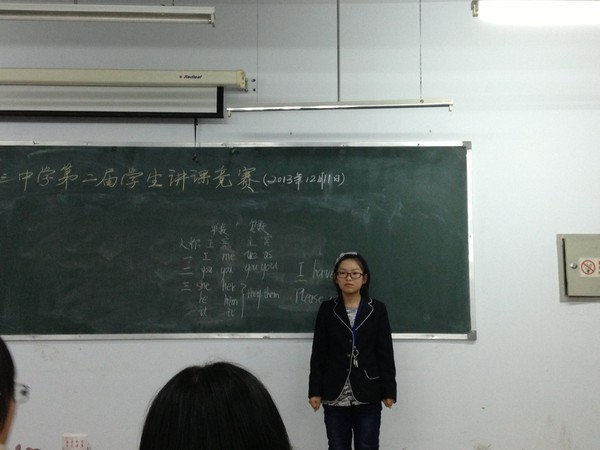 三中学第二届学生讲课竞赛(2013年12月11日)
单数 复数
人称 主 宾 主 宾
一 I me we us
二 you you you you
三 she her
he him they them
it it
I have
Please